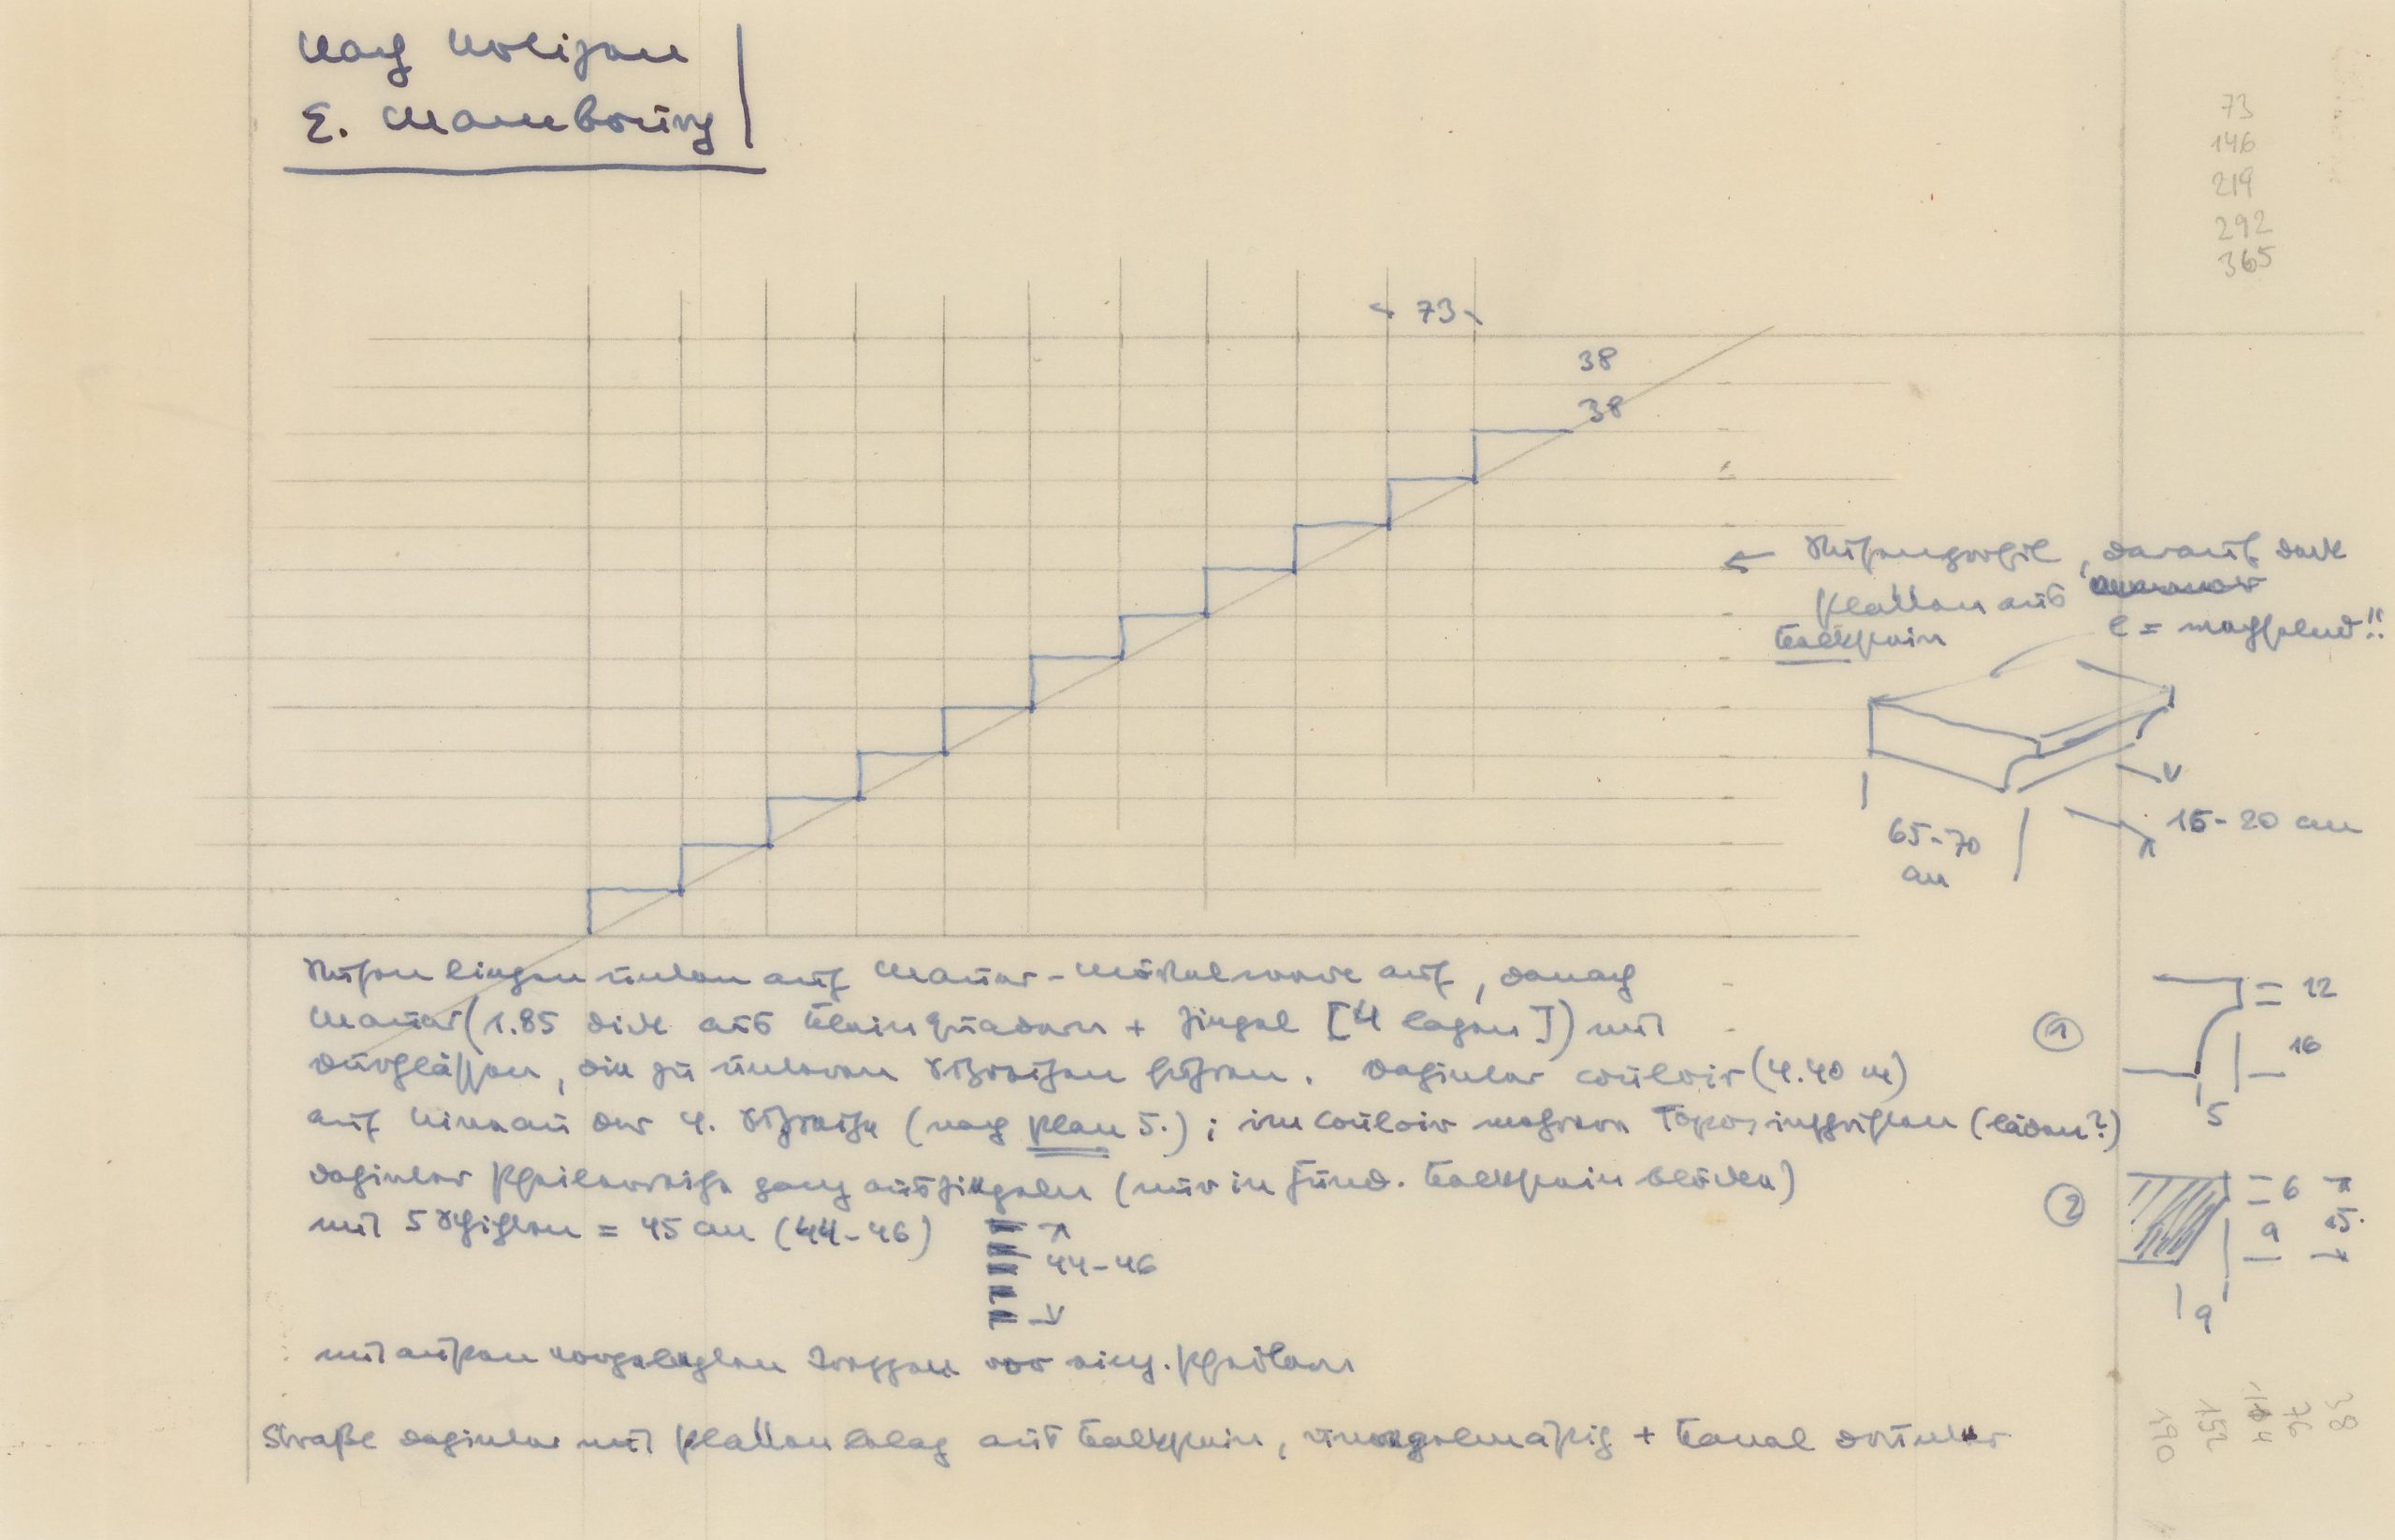 Nach Notizen
E. Mamboury
73
146
219
292
365
73
38
38
← Stufenprofil, darauf Deck
platten aus
Kalkstein
l = wechselnd!!
65-70
cm
15-20 cm
Stufen liegen unten auf Mauer-Mörtelwerk auf, danach
Mauer (1.85 dick aus Kleinquadern + Ziegel [4 Lagen]) mit
Durchlässen, die zu unteren Sitzreihen führen. Dahinter Couloir (4.40 m)
auf Niveau der 4. Sitzreihe (nach Plan 5.); im Couloir mehrere Toposinschriften (Läden?)
Dahinter Pfeilerreihe ganz aus Ziegeln (nur in Fund. Kalksteinblöcke)
mit 5 Schichten = 45 cm (44-46)
44-46
mit außen vorgelegten Treppen vor einz. Pfeilern
Straße dahinter mit Plattenbelag aus Kalkstein, unregelmäßig + Kanal darunter
①
12
16
5
②
6
9
15.
9
38
76
114
152
190